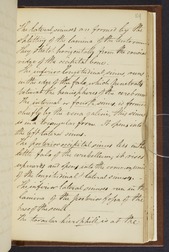 The Lateral sinuses are formed by the
splitting of the lamina of the tentorium
They extend horizontally from the
ridge of the occipital bone.
The inferior longitudinal sinus runs
in the edge of the falx, which penetrates
between the hemispheres of the cerebrum
The internal or fourth sinus is formed
chiefly by the vena galeni, this sinus
is of a triangular form. It opens into
the left lateral sinus.
The posterior occipital sinus lies in the
little falx of the cerebellum, it
and opens into the
of the longitudinal & lateral sinuses.
The inferior lateral sinuses run in the
lamina of the posterior fossa of the
base of the scull.
The torcular herophili is at the